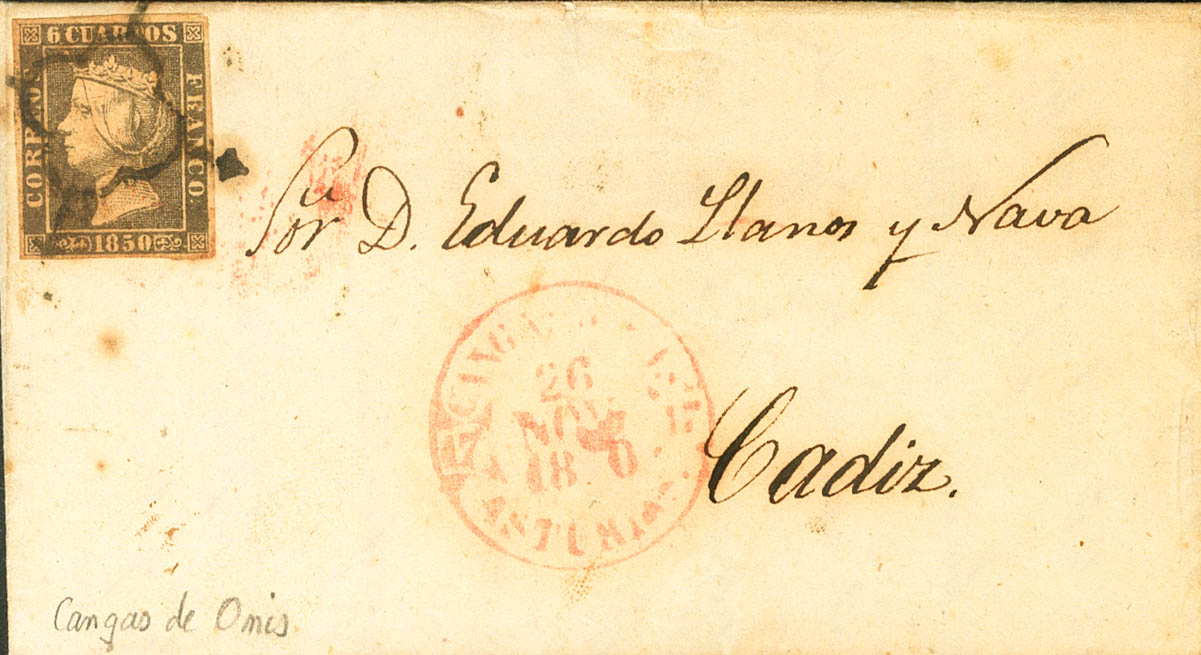 6 CUARTOS
CORREOS
FRANCO.
1850
Sor D. Eduardo Llanos y Nava
26
NOV
18 0
ASTURIAS
Cadiz.
Cangas de Onis